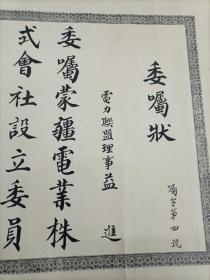 委囑狀
囑字第四號
電力聯盟理事益進
委囑蒙疆電業株
式會社設立委員